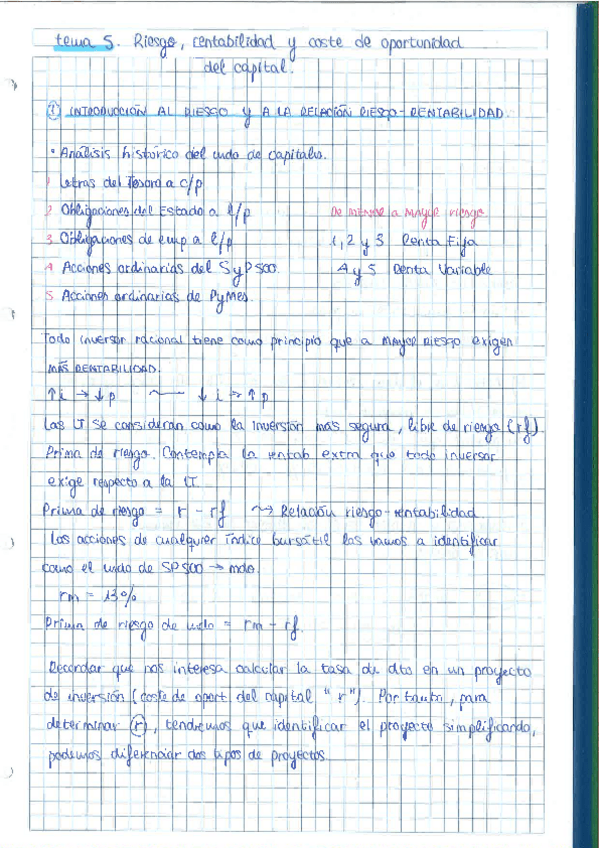 tema 5. Riesgo, rentabilidad y coste de oportunidad
del capital.
① INTRODUCCIÓN AL RIESGO Y A LA RELACIÓN RIESGO-RENTABILIDAD.
• Análisis histórico del mdo de capitales.
1 Letras del Tesoro a c/p
2 Obligaciones del Estado a l/p DE MENOR a MAYOR riesgo
3 Obligaciones de emp a l/p 1, 2 y 3 Renta Fija
4 Acciones ordinarias del SyP500. 4 y 5 Renta Variable
5 Acciones ordinarias de PyMes.
Todo inversor racional tiene como principio que a MAYOR RIESGO exigen
MÁS RENTABILIDAD.
↑i → ↓p ↓i → ↑p
Las LT se consideran como la inversión más segura, libre de riesgo (rf)
Prima de riesgo. Contempla la rentab extra que todo inversor
exige respecto a la LT.
Prima de riesgo = r - rf ⤳ Relación riesgo-rentabilidad.
Las acciones de cualquier índice bursátil las vamos a identificar
como el mdo de SP500 → mdo.
rm = 13%
Prima de riesgo de mdo = rm - rf.
Recordar que nos interesa calcular la tasa de dto en un proyecto
de inversión (coste de oport del capital "r"). Por tanto, para
determinar (r), tendremos que identificar el proyecto simplificando,
podemos diferenciar dos tipos de proyectos